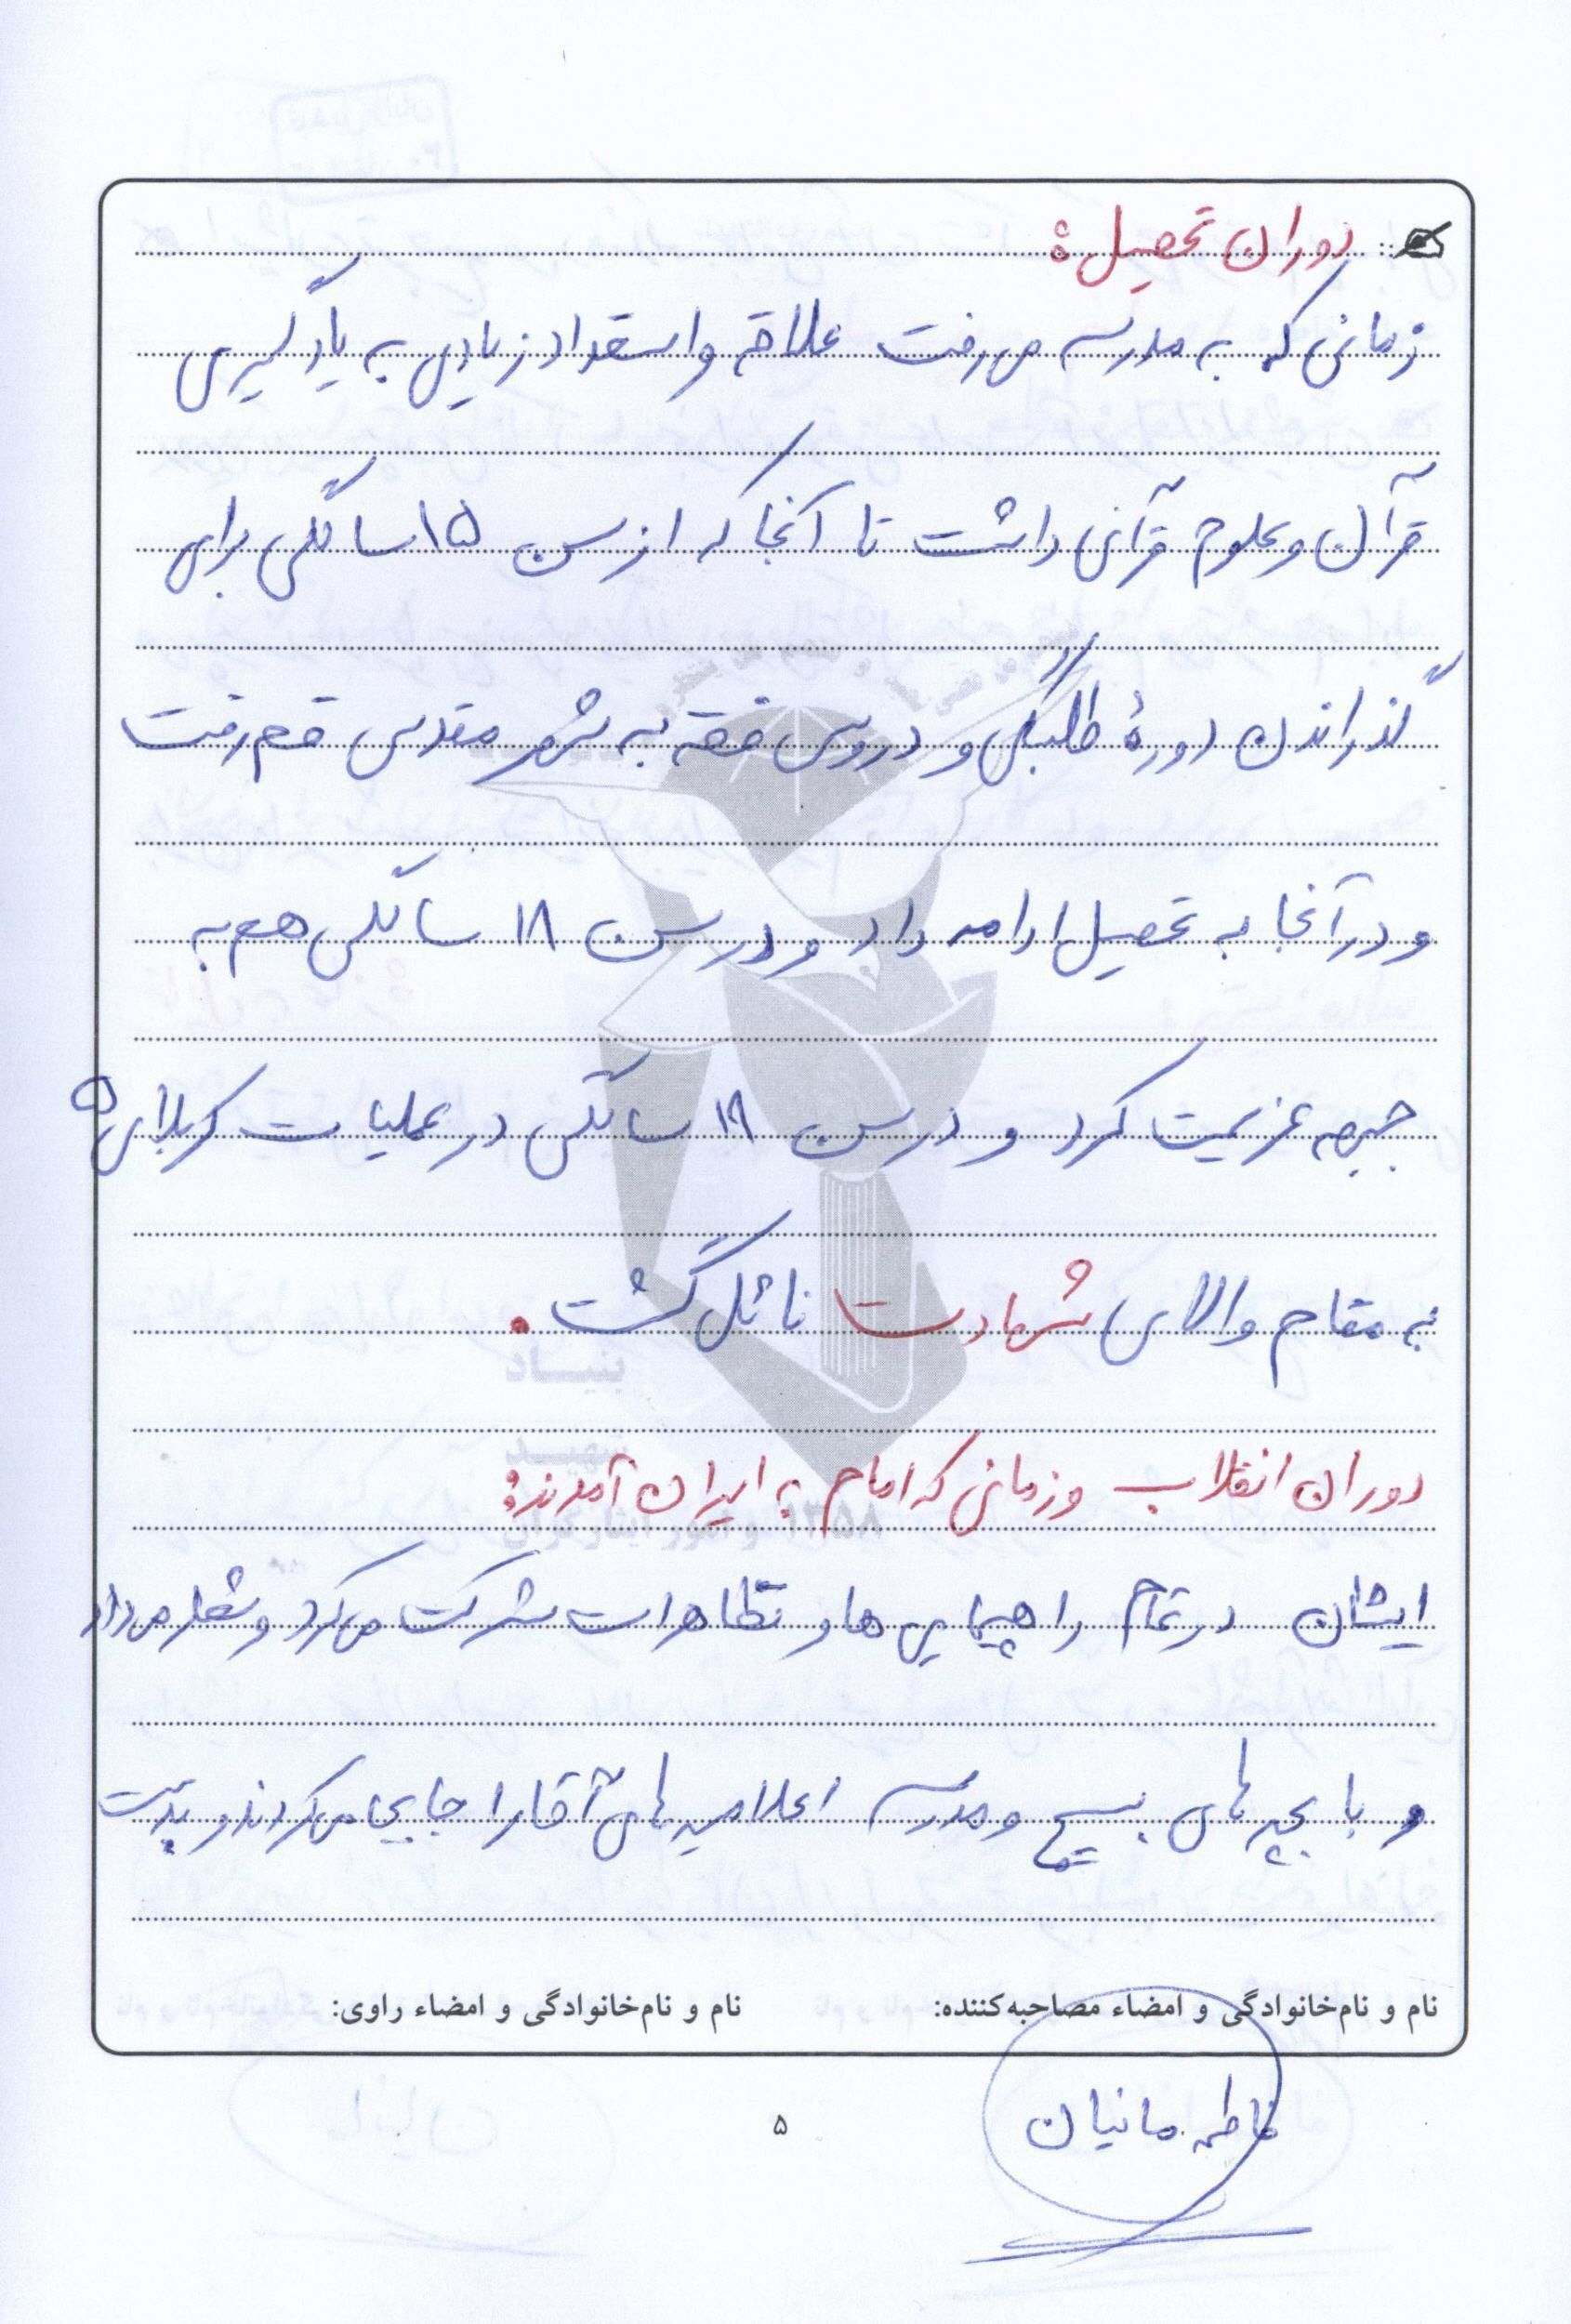 دوران تحصیل:
زمانی که به مدرسه می رفت علاقه و استعداد زیادی به یادگیری
قرآن و علوم قرآنی داشت تا آنجا که از سن ۱۵ سالگی برای
گذراندن دورۀ طلبگی و دروس فقه به شهر مقدس قم رفت
و در آنجا به تحصیل ادامه داد و در سن ۱۸ سالگی هم به
جبهه عزیمت کرد و در سن ۱۹ سالگی در عملیات کربلای ۵
به مقام والای شهادت نائل گشت.
دوران انقلاب و زمانی که امام به ایران آمدند:
ایشان در تمام راهپیمایی ها و تظاهرات شرکت می کرد و شعار می داد
و با بچه های بسیج و مدرسه اعلامیه های آقا را جابجا می کردند و بدست
نام و نام‌خانوادگی و امضاء مصاحبه‌کننده: نام و نام‌خانوادگی و امضاء راوی:
فاطمه مانیان
۵